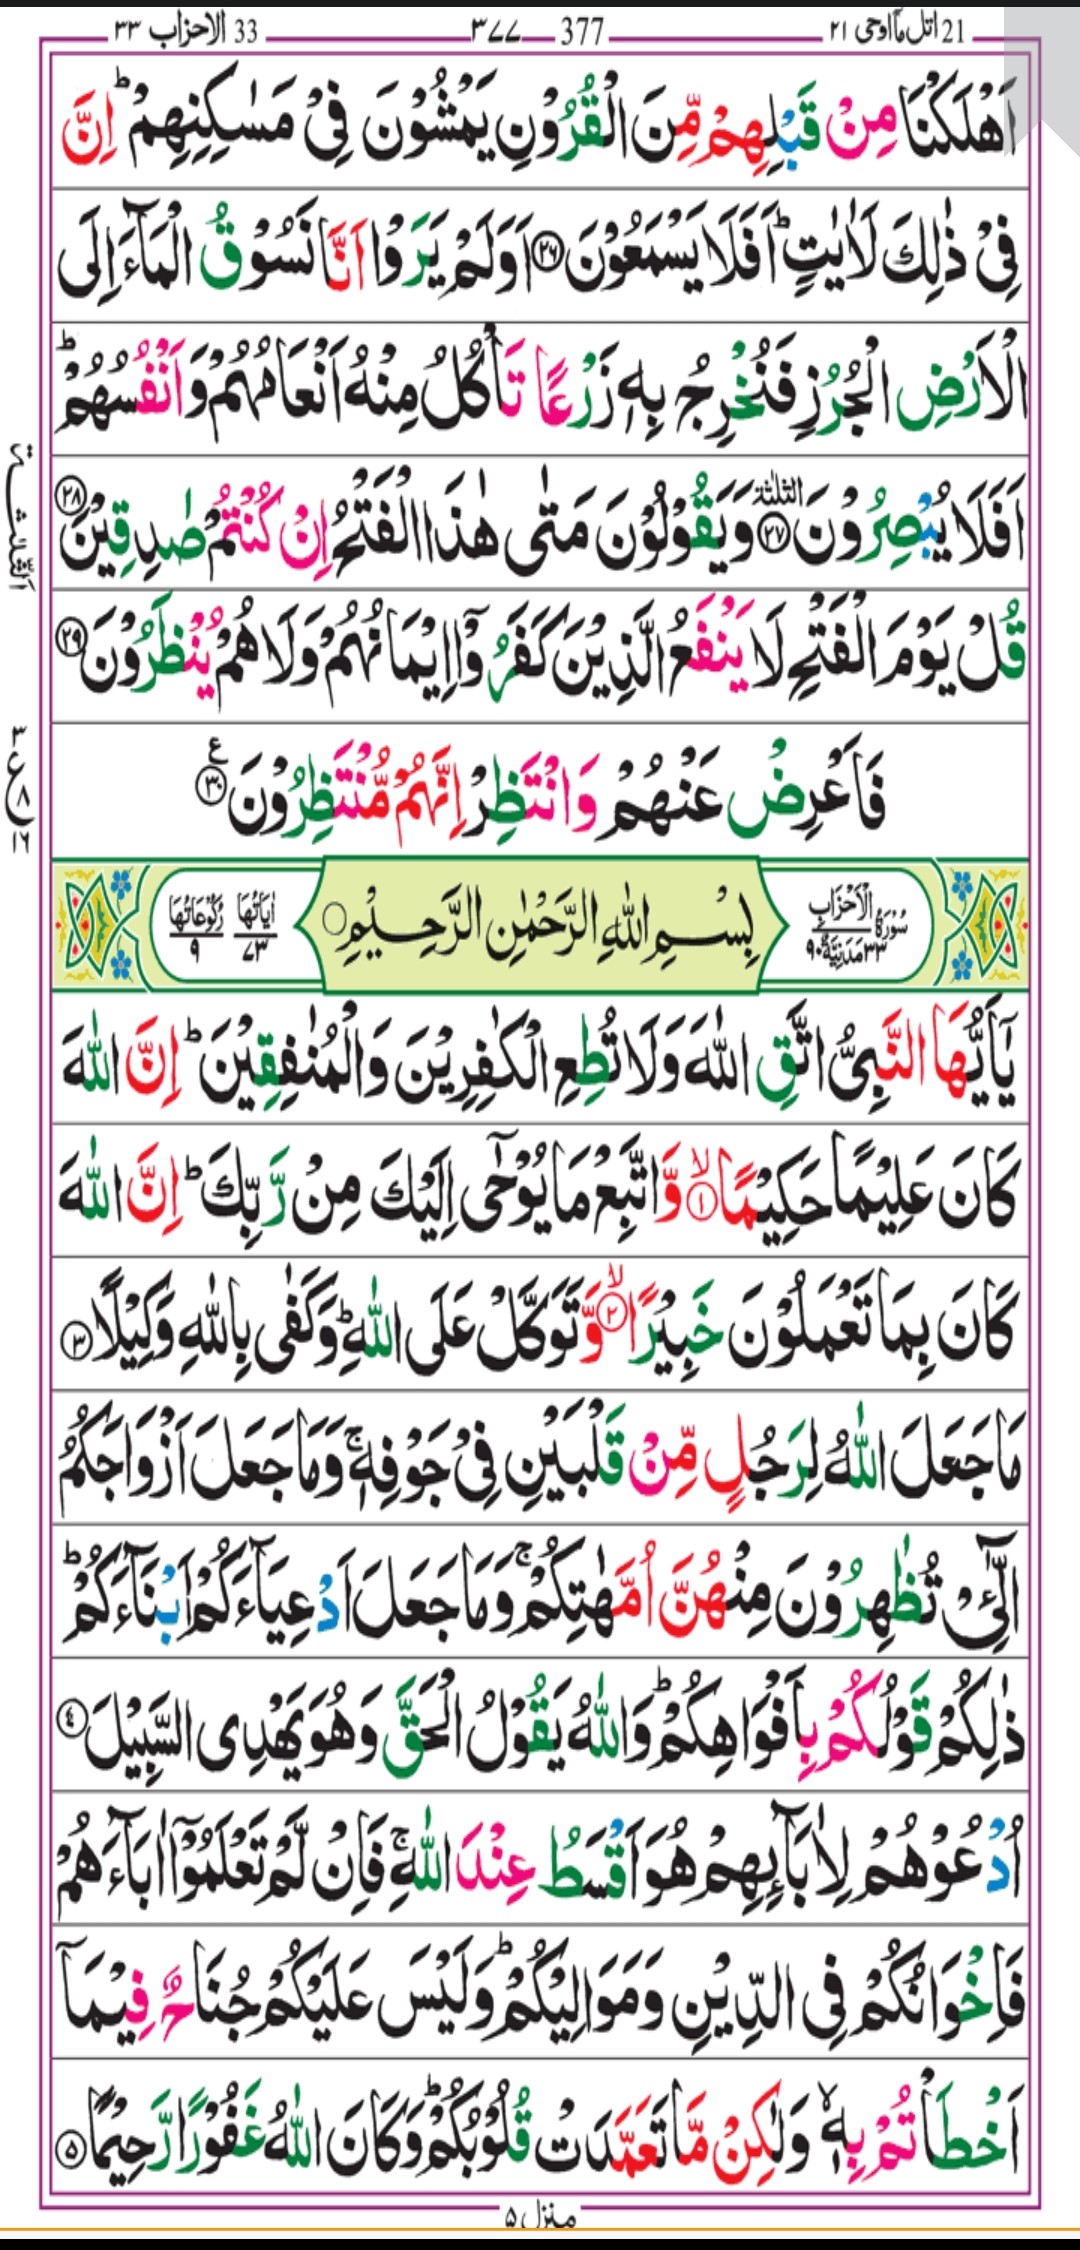 21 اتل ماۤاوحی ۲۱ 377 ۳۷۷ 33 الاحزاب ۳۳
اَهْلَكْنَا مِنْ قَبْلِهِمْ مِّنَ الْقُرُوْنِ يَمْشُوْنَ فِيْ مَسٰكِنِهِمْ ؕ اِنَّ
فِيْ ذٰلِكَ لَاٰيٰتٍ ؕ اَفَلَا يَسْمَعُوْنَ ۲۶ اَوَلَمْ يَرَوْا اَنَّا نَسُوْقُ الْمَآءَ اِلَى
الْاَرْضِ الْجُرُزِ فَنُخْرِجُ بِهٖ زَرْعًا تَاْكُلُ مِنْهُ اَنْعَامُهُمْ وَ اَنْفُسُهُمْ ؕ
اَفَلَا يُبْصِرُوْنَ ۲۷ الثلٰثة وَ يَقُوْلُوْنَ مَتٰى هٰذَا الْفَتْحُ اِنْ كُنْتُمْ صٰدِقِيْنَ ۲۸
الثلٰثة
قُلْ يَوْمَ الْفَتْحِ لَا يَنْفَعُ الَّذِيْنَ كَفَرُوْۤا اِيْمَانُهُمْ وَ لَا هُمْ يُنْظَرُوْنَ ۲۹
فَاَعْرِضْ عَنْهُمْ وَ انْتَظِرْ اِنَّهُمْ مُّنْتَظِرُوْنَ ۳۰ ع
۳ ع ۸ ۱۶
سُوْرَةُ الْاَحْزَابِ ۳۳ مَدَنِيَّةٌ ۹۰ بِسْمِ اللّٰهِ الرَّحْمٰنِ الرَّحِيْمِ اٰيَاتُهَا ۷۳ رُكُوْعَاتُهَا ۹
يٰۤاَيُّهَا النَّبِيُّ اتَّقِ اللّٰهَ وَ لَا تُطِعِ الْكٰفِرِيْنَ وَ الْمُنٰفِقِيْنَ ؕ اِنَّ اللّٰهَ
كَانَ عَلِيْمًا حَكِيْمًا ۙ ۱ وَّ اتَّبِعْ مَا يُوْحٰۤى اِلَيْكَ مِنْ رَّبِّكَ ؕ اِنَّ اللّٰهَ
كَانَ بِمَا تَعْمَلُوْنَ خَبِيْرًا ۙ ۲ وَّ تَوَكَّلْ عَلَى اللّٰهِ ؕ وَ كَفٰى بِاللّٰهِ وَكِيْلًا ۳
مَا جَعَلَ اللّٰهُ لِرَجُلٍ مِّنْ قَلْبَيْنِ فِيْ جَوْفِهٖ ۚ وَ مَا جَعَلَ اَزْوَاجَكُمُ
الّٰٓـِٔيْ تُظٰهِرُوْنَ مِنْهُنَّ اُمَّهٰتِكُمْ ۚ وَ مَا جَعَلَ اَدْعِيَآءَكُمْ اَبْنَآءَكُمْ ؕ
ذٰلِكُمْ قَوْلُكُمْ بِاَفْوَاهِكُمْ ؕ وَ اللّٰهُ يَقُوْلُ الْحَقَّ وَ هُوَ يَهْدِى السَّبِيْلَ ۴
اُدْعُوْهُمْ لِاٰبَآىِٕهِمْ هُوَ اَقْسَطُ عِنْدَ اللّٰهِ ۚ فَاِنْ لَّمْ تَعْلَمُوْۤا اٰبَآءَهُمْ
فَاِخْوَانُكُمْ فِى الدِّيْنِ وَ مَوَالِيْكُمْ ؕ وَ لَيْسَ عَلَيْكُمْ جُنَاحٌ فِيْمَاۤ
اَخْطَاْتُمْ بِهٖ ۙ وَ لٰكِنْ مَّا تَعَمَّدَتْ قُلُوْبُكُمْ ؕ وَ كَانَ اللّٰهُ غَفُوْرًا رَّحِيْمًا ۵
منزل ۵